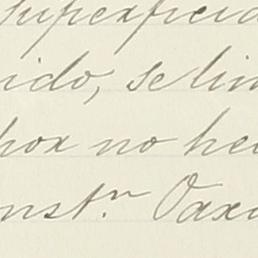 superficia
ido, se lim
por no hec
nst.n Oaxa